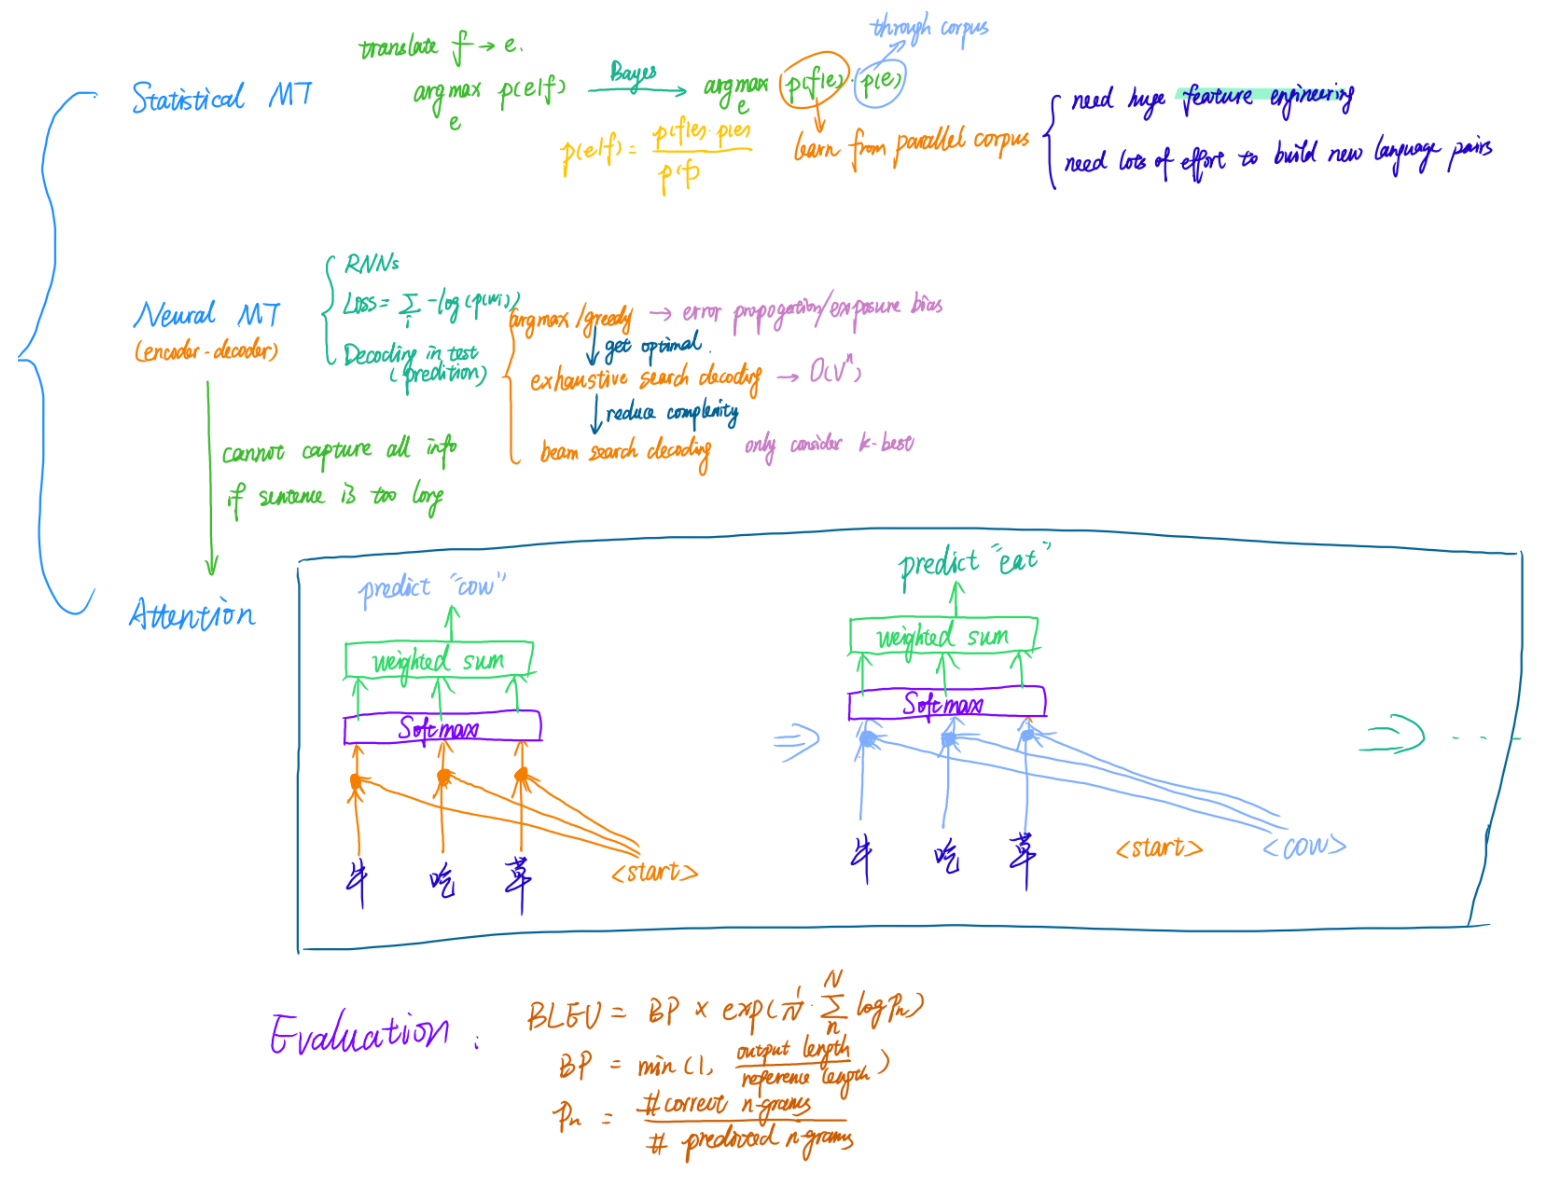 through corpus
translate f → e.
Statistical MT
argmax p(e|f) Bayes argmax p(f|e) · p(e)
e e
p(e|f) = p(f|e) · p(e) / p(f)
learn from parallel corpus
need huge feature engineering
need lots of effort to build new language pairs
Neural MT
(encoder-decoder)
RNNs
Loss = Σ -log(p(wi))
i
Decoding in test
(predition)
argmax/greedy → error propogertion/exposure bias
get optimal.
exhaustive search decoding → O(V^n)
reduce complexity
beam search decoding only consider k-best
cannot capture all info
if sentence is too long
Attention
predict "cow"
weighted sum
Softmax
牛 吃 草 <start>
predict "eat"
weighted sum
Softmax
牛 吃 草 <start> <cow>
Evaluation:
BLEU = BP × exp(1/N · Σ log Pn)
N
n
BP = min(1, output length / reference length)
Pn = #correct n-grams / # predicted n-grams